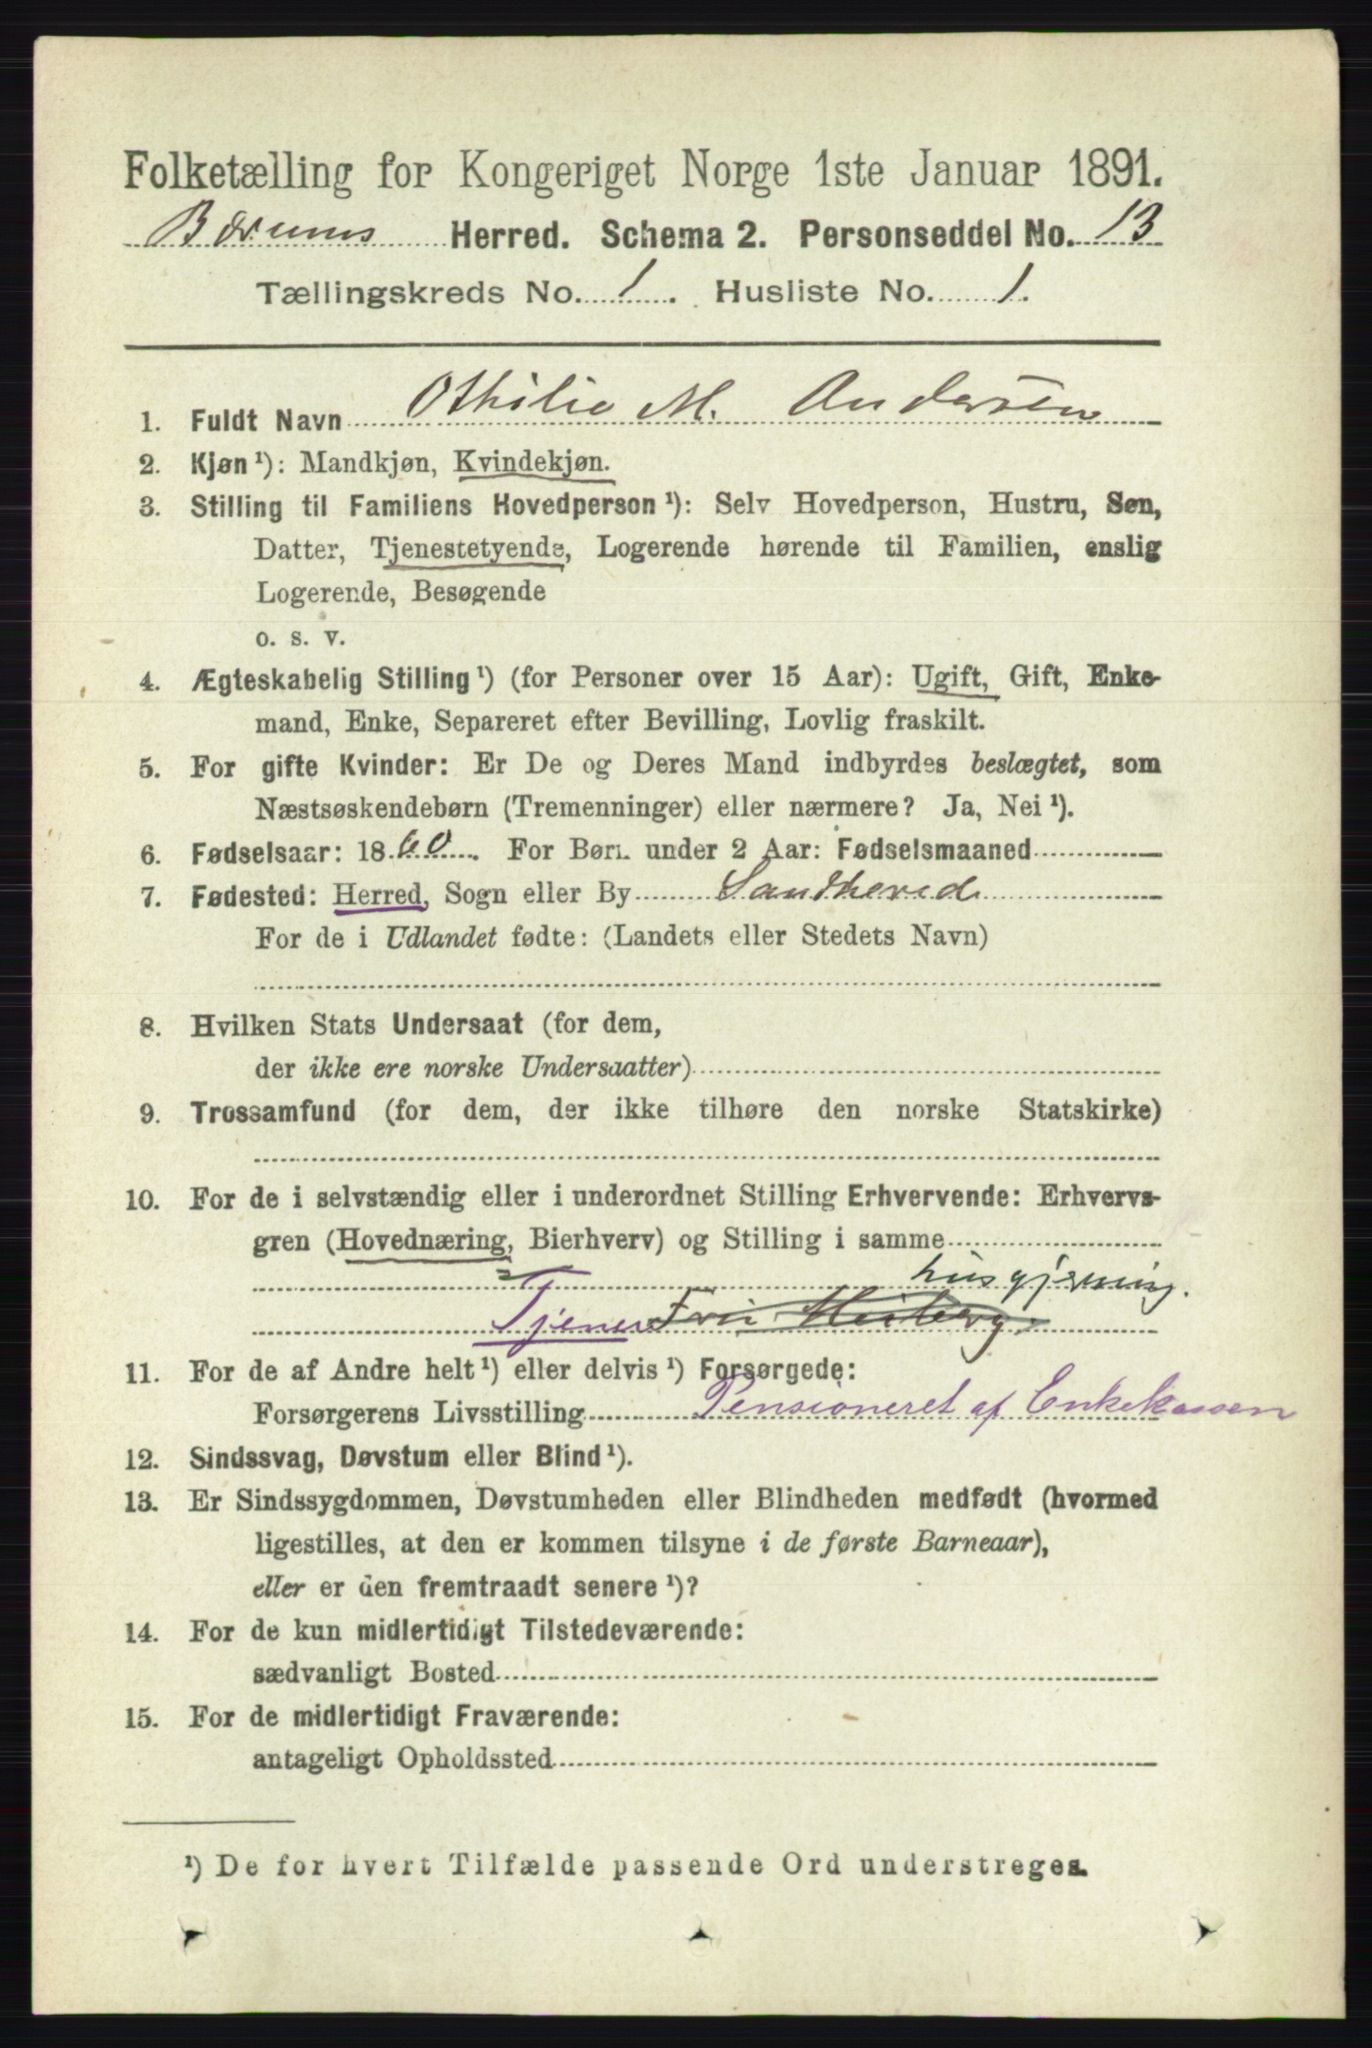 Folketælling for Kongeriget Norge 1ste Januar 1891.
Bærums Herred. Schema 2. Personseddel No. 13
Tællingskreds No. 1. Husliste No. 1.
1. Fuldt Navn Othilie M. Andersen
2. Kjøn¹): Mandkjøn, Kvindekjøn.
3. Stilling til Familiens Hovedperson¹): Selv Hovedperson, Hustru, Søn,
Datter, Tjenestetyende, Logerende hørende til Familien, enslig
Logerende, Besøgende
o. s. v.
4. Ægteskabelig Stilling¹) (for Personer over 15 Aar): Ugift, Gift, Enke-
mand, Enke, Separeret efter Bevilling, Lovlig fraskilt.
5. For gifte Kvinder: Er De og Deres Mand indbyrdes beslægtet, som
Næstsøskendebørn (Tremenninger) eller nærmere? Ja, Nei¹).
6. Fødselsaar: 1860. For Børn under 2 Aar: Fødselsmaaned
7. Fødested: Herred, Sogn eller By Sandherred
For de i Udlandet fødte: (Landets eller Stedets Navn)
8. Hvilken Stats Undersaat (for dem,
der ikke ere norske Undersaatter)
9. Trossamfund (for dem, der ikke tilhøre den norske Statskirke)
10. For de i selvstændig eller i underordnet Stilling Erhvervende: Erhvervs-
gren (Hovednæring, Bierhverv) og Stilling i samme
husgjerning.
Tjener
11. For de af Andre helt¹) eller delvis¹) Forsørgede:
Forsørgerens Livsstilling Pensioneret af Enkekassen
12. Sindssvag, Døvstum eller Blind¹).
13. Er Sindssygdommen, Døvstumheden eller Blindheden medfødt (hvormed
ligestilles, at den er kommen tilsyne i de første Barneaar),
eller er den fremtraadt senere¹)?
14. For de kun midlertidigt Tilstedeværende:
sædvanligt Bosted
15. For de midlertidigt Fraværende:
antageligt Opholdssted
¹) De for hvert Tilfælde passende Ord understreges.